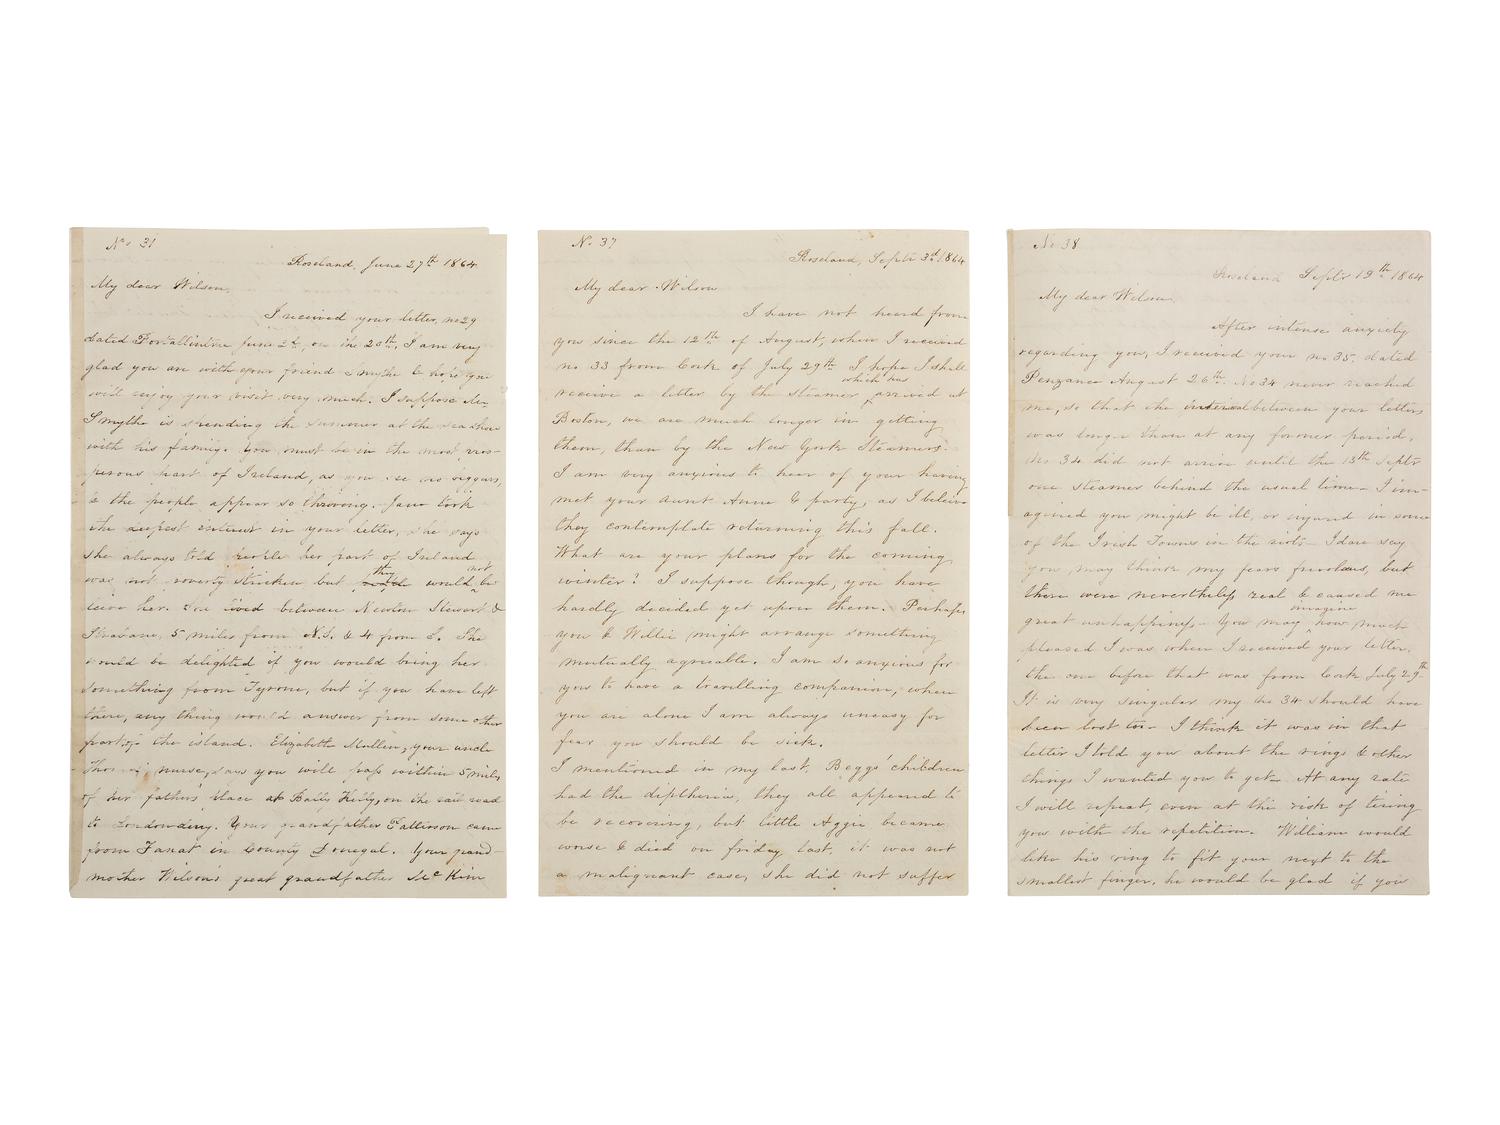 No 31
Roseland, June 27th 1864
My dear Wilson,
I received your letter, no 29
dated Portallintra June 2d, on the 20th. I am very
glad you are with your friend Smythe & hope you
will enjoy your visit very much. I suppose Mr
Smythe is spending the summer at the sea shore
with his family. You must be in the most pros-
perous part of Ireland, as you see no biggars,
& the people appear so throving. Jane took
the deepest interest in your letter, she says
she always told people her part of Ireland
was not poverty stricken but they would not be
leive her. She lived between Newton Stewart &
Strabane, 5 miles from N.S. & 4 from S. She
would be delighted if you would bring her
something from Tyrone, but if you have left
there, any thing would answer from some other
part of the island. Elizabeth Mullen, your uncle
nurse, says you will pass within 5 miles
of her father's place at Balls Kelly, on the rail road
to Londonderry. Your grandfather Patterson came
from Fanat in County Donegal. Your grand-
mother Wilson's great grandfather McKim
No. 37
Roseland, Septr 3d 1864
My dear Wilson
I have not heard from
you since the 12th of August, when I received
no 33 from Cork of July 29th I hope I shall
receive a letter by the steamer which has arrived at
Boston, we are much longer in getting
them, than by the New York Steamers.
I am very anxious to hear of your having
met your aunt Anne & party, as I believe
they contemplate returning this fall.
What are your plans for the coming
winter? I suppose though, you have
hardly decided yet upon them. Perhaps
you & Willie might arrange something
mutually agreable. I am so anxious for
you to have a travelling companion, when
you are alone I am always uneasy for
fear you should be sick.
I mentioned in my last, Beggs' children
had the diptheria, they all appeared to
be recovering, but little Aggie became
worse & died on friday last, it was not
a malignant case, she did not suffer
No 38
Roseland Septr 19th 1864
My dear Wilson
After intense anxiety
regarding you, I received your no 35, dated
Penzance August 26th. No 34 never reached
me, so that the interval between your letters
was longer than at any former period,
no 34 did not arrive until the 13th Septr
one steamer behind the usual time. I im-
agined you might be ill, or injured in some
of the Irish Towns in the riots. I dare say
you may think my fears frivolous, but
there were nevertheless real & caused me
great unhappiness. You may imagine how much
pleased I was when I received your letter,
the one before that was from Cork July 29th
It is very singular my no 34 should have
been lost too. I think it was in that
letter I told you about the rings & other
things I wanted you to get. At any rate
I will repeat, even at the risk of tiring
you with the repetition. William would
like his ring to fit your next to the
smallest finger, he would be glad if you